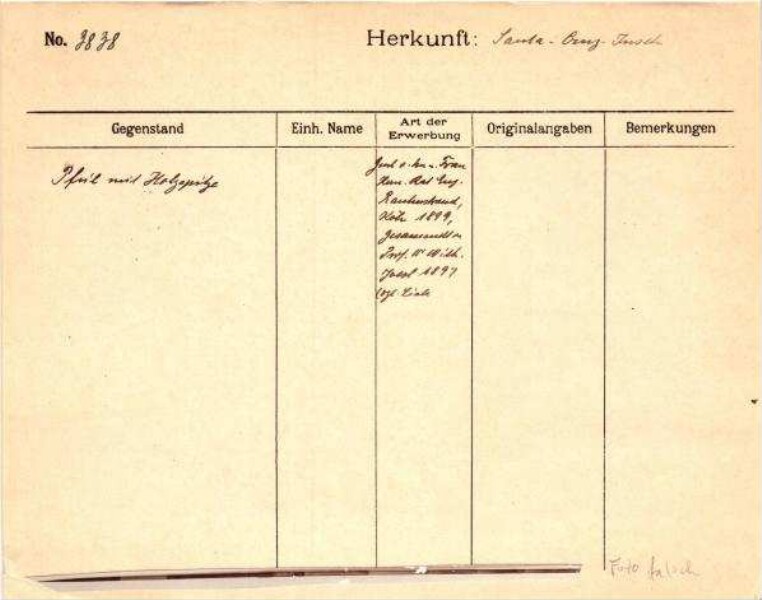 No. 3838
Herkunft: Santa-Cruz-Inseln
Gegenstand
Einh. Name
Art der Erwerbung
Originalangaben
Bemerkungen
Pfeil mit Holzspitze
Frau
Rautenstrauch,
Köln 1899,
Gesammelt v.
Prof. Dr Wilh.
Joest 1897
Foto falsch